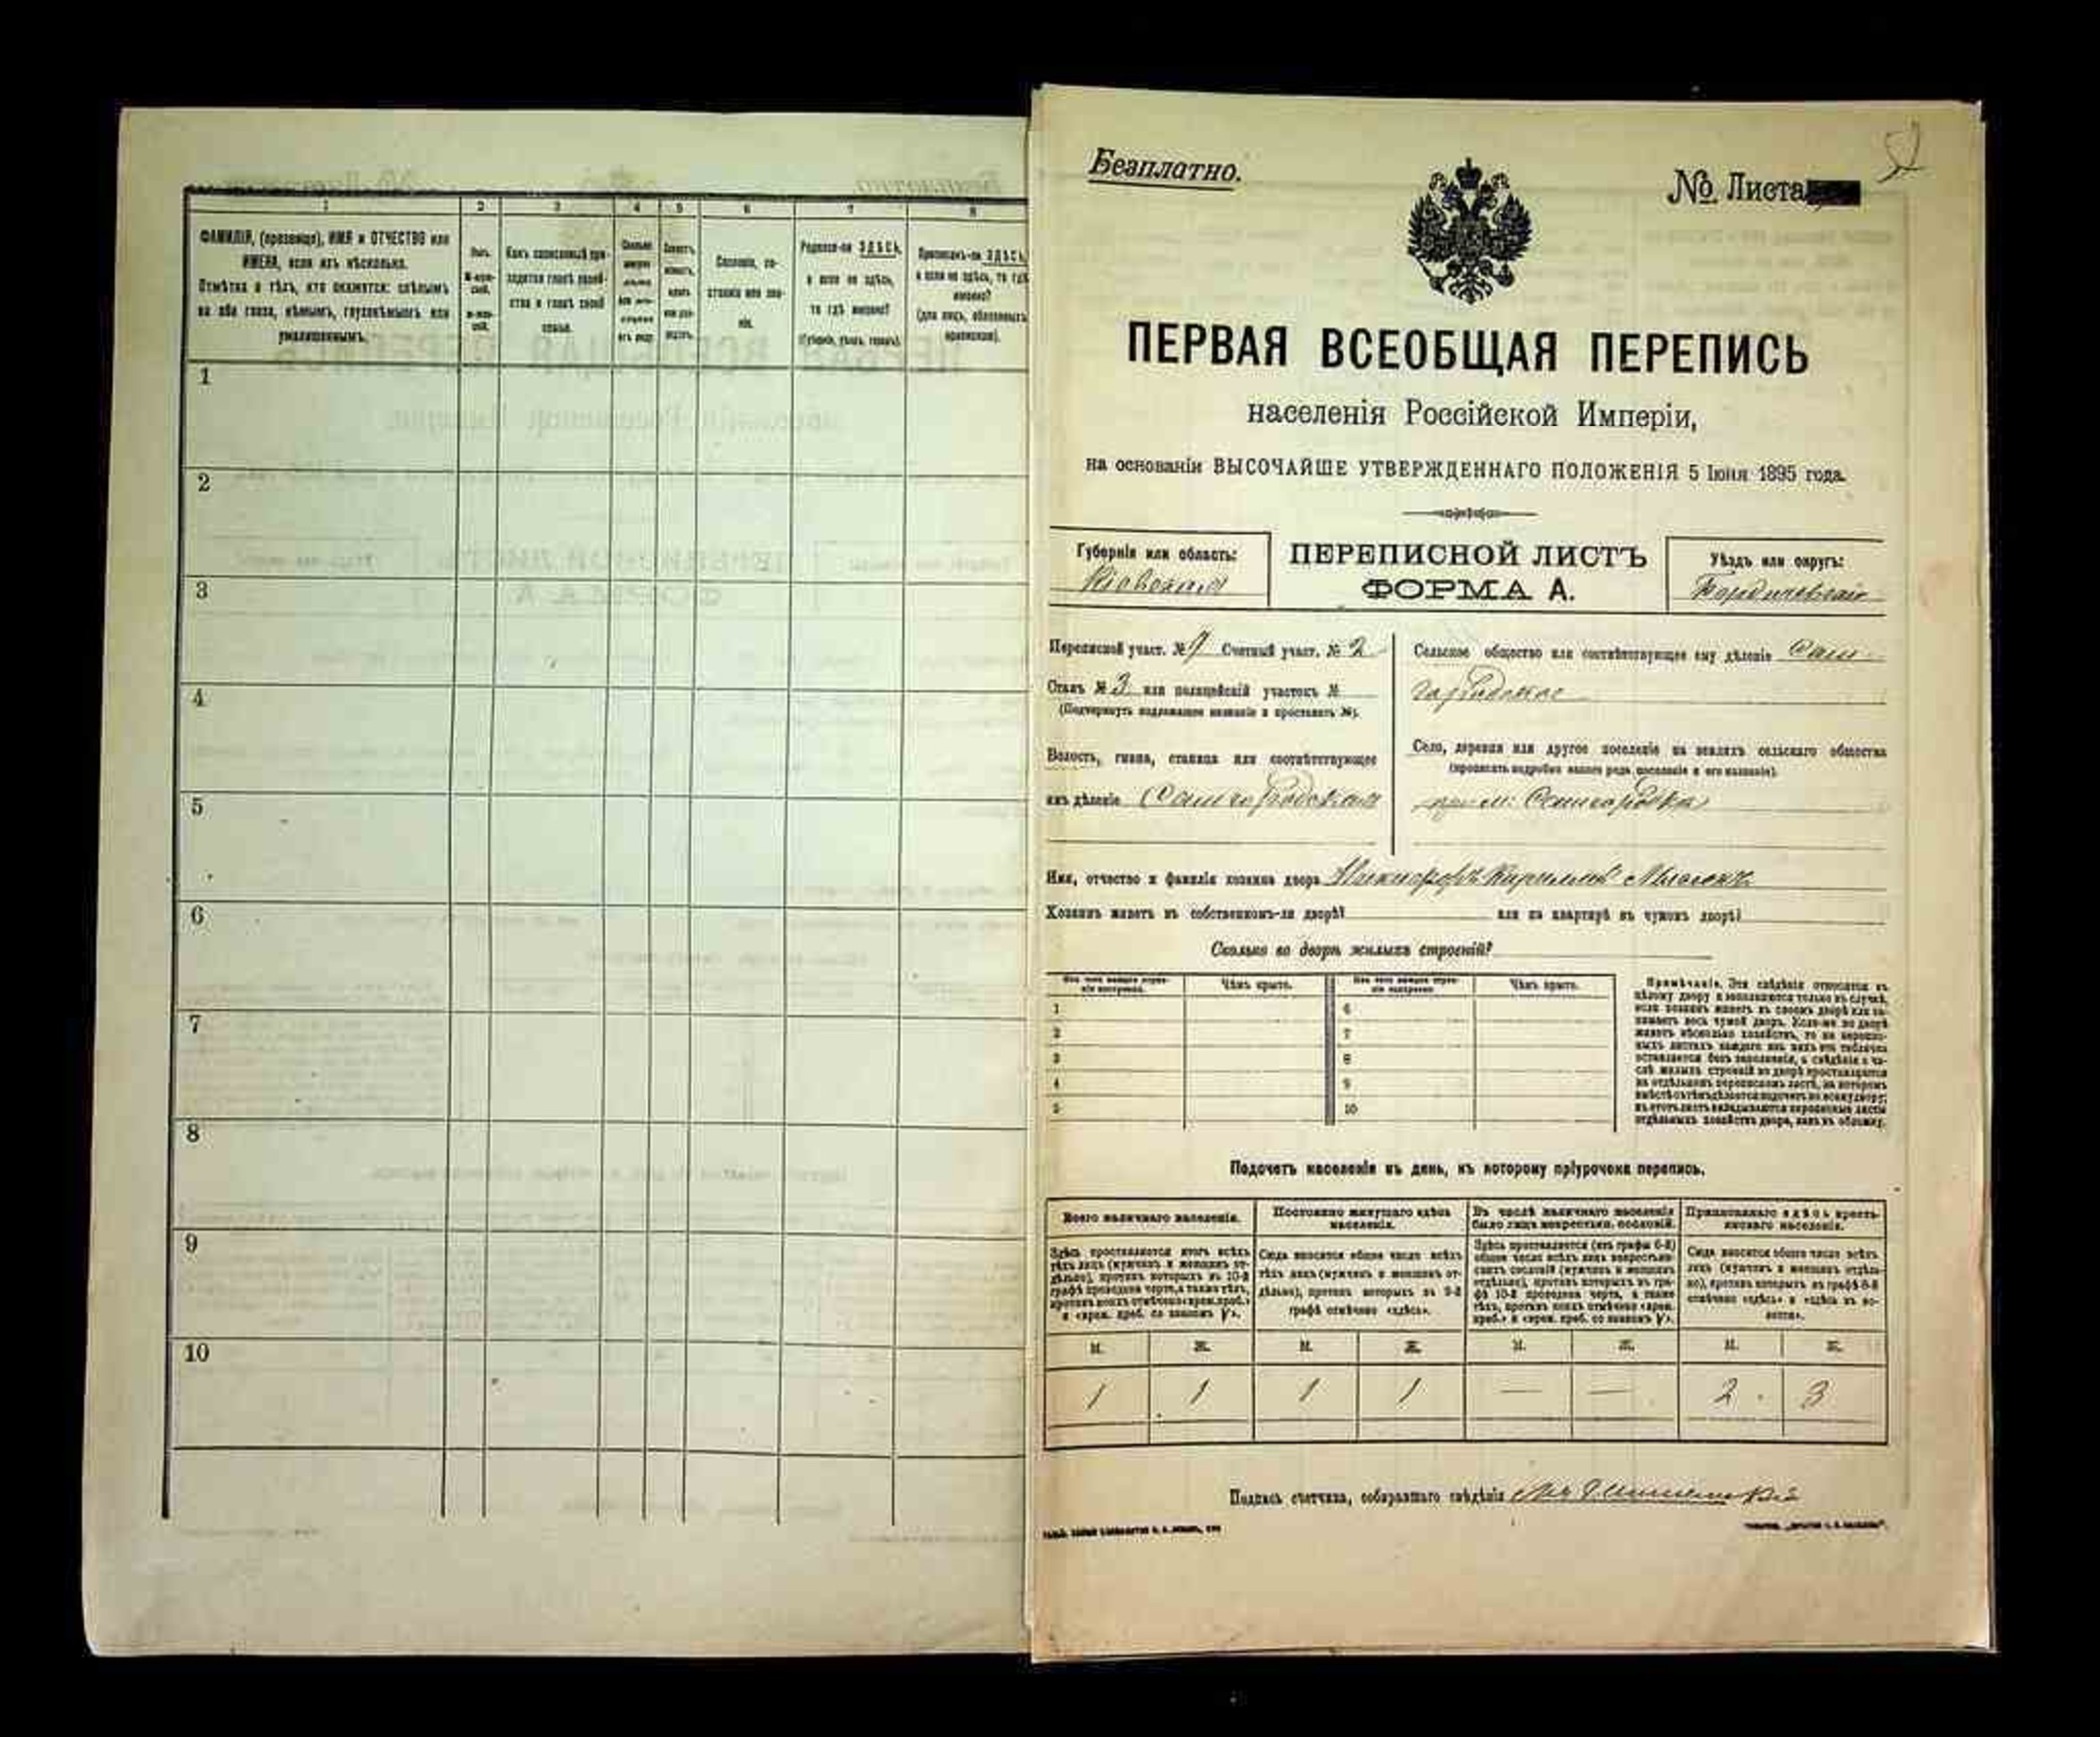 1 2 3 4 5 6 7 8
ФАМИЛІЯ, (прозвище), ИМЯ и ОТЧЕСТВО или
ИМЕНА, если ихъ нѣсколько.
Отмѣтка о тѣхъ, кто окажется: слѣпымъ
на оба глаза, нѣмымъ, глухонѣмымъ или
умалишеннымъ.
Полъ.
Какъ записанный при-
ходится главѣ хозяй-
ства и главѣ своей
семьи.
Сословіе, со-
стояніе или зва-
ніе.
Родился-ли ЗДѢСЬ,
а если не здѣсь,
то гдѣ именно?
(Губернія, уѣздъ, городъ).
Приписанъ-ли ЗДѢСЬ,
а если не здѣсь, то гдѣ
именно?
(для лицъ, обязанныхъ
припискою).
1
2
3
4
5
6
7
8
9
10
Безплатно.
№ Листа
ПЕРВАЯ ВСЕОБЩАЯ ПЕРЕПИСЬ
населенія Россійской Имперіи,
на основаніи ВЫСОЧАЙШЕ УТВЕРЖДЕННАГО ПОЛОЖЕНІЯ 5 Іюня 1895 года.
Губернія или область:
Кіевская
ПЕРЕПИСНОЙ ЛИСТЪ
ФОРМА А.
Уѣздъ или округъ:
Бердичевскій
Переписной участ. № 7 Счетный участ. № 2
Станъ № 3 или полицейскій участокъ №
(Подчеркнуть подлежащее названіе и проставить №).
Волость, гмина, станица или соотвѣтствующее
имъ дѣленіе Самгородская
Сельское общество или соотвѣтствующее ему дѣленіе Сам-
городское
Село, деревня или другое поселеніе на земляхъ сельскаго общества
(прописать подробно какого рода поселеніе и его названіе).
Имя, отчество и фамилія хозяина двора Никифоръ
Хозяинъ живетъ въ собственномъ-ли дворѣ? или на квартирѣ въ чужомъ дворѣ?
Сколько во дворѣ жилыхъ строеній?
Изъ чего каждое строе-
ніе построено.
Чѣмъ крыто.
Изъ чего каждое строе-
ніе построено.
Чѣмъ крыто.
1 6
2 7
3 8
4 9
5 10
Примѣчаніе. Эти свѣдѣнія относятся къ
цѣлому двору и заполняются только въ случаѣ,
если хозяинъ живетъ въ своемъ дворѣ или за-
нимаетъ весь чужой дворъ. Если-же во дворѣ
живетъ нѣсколько хозяйствъ, то на перепис-
ныхъ листахъ каждаго изъ нихъ эта табличка
оставляется безъ заполненія, а свѣдѣнія о чи-
слѣ жилыхъ строеній во дворѣ проставляются
на отдѣльномъ переписномъ листѣ, на которомъ
вмѣстѣ съ тѣмъ дѣлается подсчетъ по всему двору;
въ этотъ листъ вкладываются переписные листы
отдѣльныхъ хозяйствъ двора, какъ въ обложку.
Подсчетъ населенія въ день, къ которому пріурочена перепись.
Всего наличнаго населенія.
Здѣсь проставляется итогъ всѣхъ
тѣхъ лицъ (мужчинъ и женщинъ от-
дѣльно), противъ которыхъ въ 10-й
графѣ проведена черта, а также тѣхъ,
противъ коихъ отмѣчено «врем. преб.»
и «врем. преб. со знакомъ V».
Постоянно живущаго здѣсь
населенія.
Сюда вносится общее число всѣхъ
тѣхъ лицъ (мужчинъ и женщинъ от-
дѣльно), противъ которыхъ въ 9-й
графѣ отмѣчено «здѣсь».
Въ числѣ наличнаго населенія
было лицъ некрестьян. сословій.
Здѣсь проставляется (изъ графы 6-й)
общее число всѣхъ лицъ некрестьян-
скихъ сословій (мужчинъ и женщинъ
отдѣльно), противъ которыхъ въ гра-
фѣ 10-й проведена черта, а также
тѣхъ, противъ коихъ отмѣчено «врем.
преб.» и «врем. преб. со знакомъ V».
Приписаннаго здѣсь кресть-
янскаго населенія.
Сюда вносится общее число всѣхъ
лицъ (мужчинъ и женщинъ отдѣль-
но), противъ которыхъ въ графѣ 8-й
отмѣчено «здѣсь» и «здѣсь въ во-
лости».
М. Ж. М. Ж. М. Ж. М. Ж.
1 1 1 1 — — 2 3
Подпись счетчика, собиравшаго свѣдѣнія